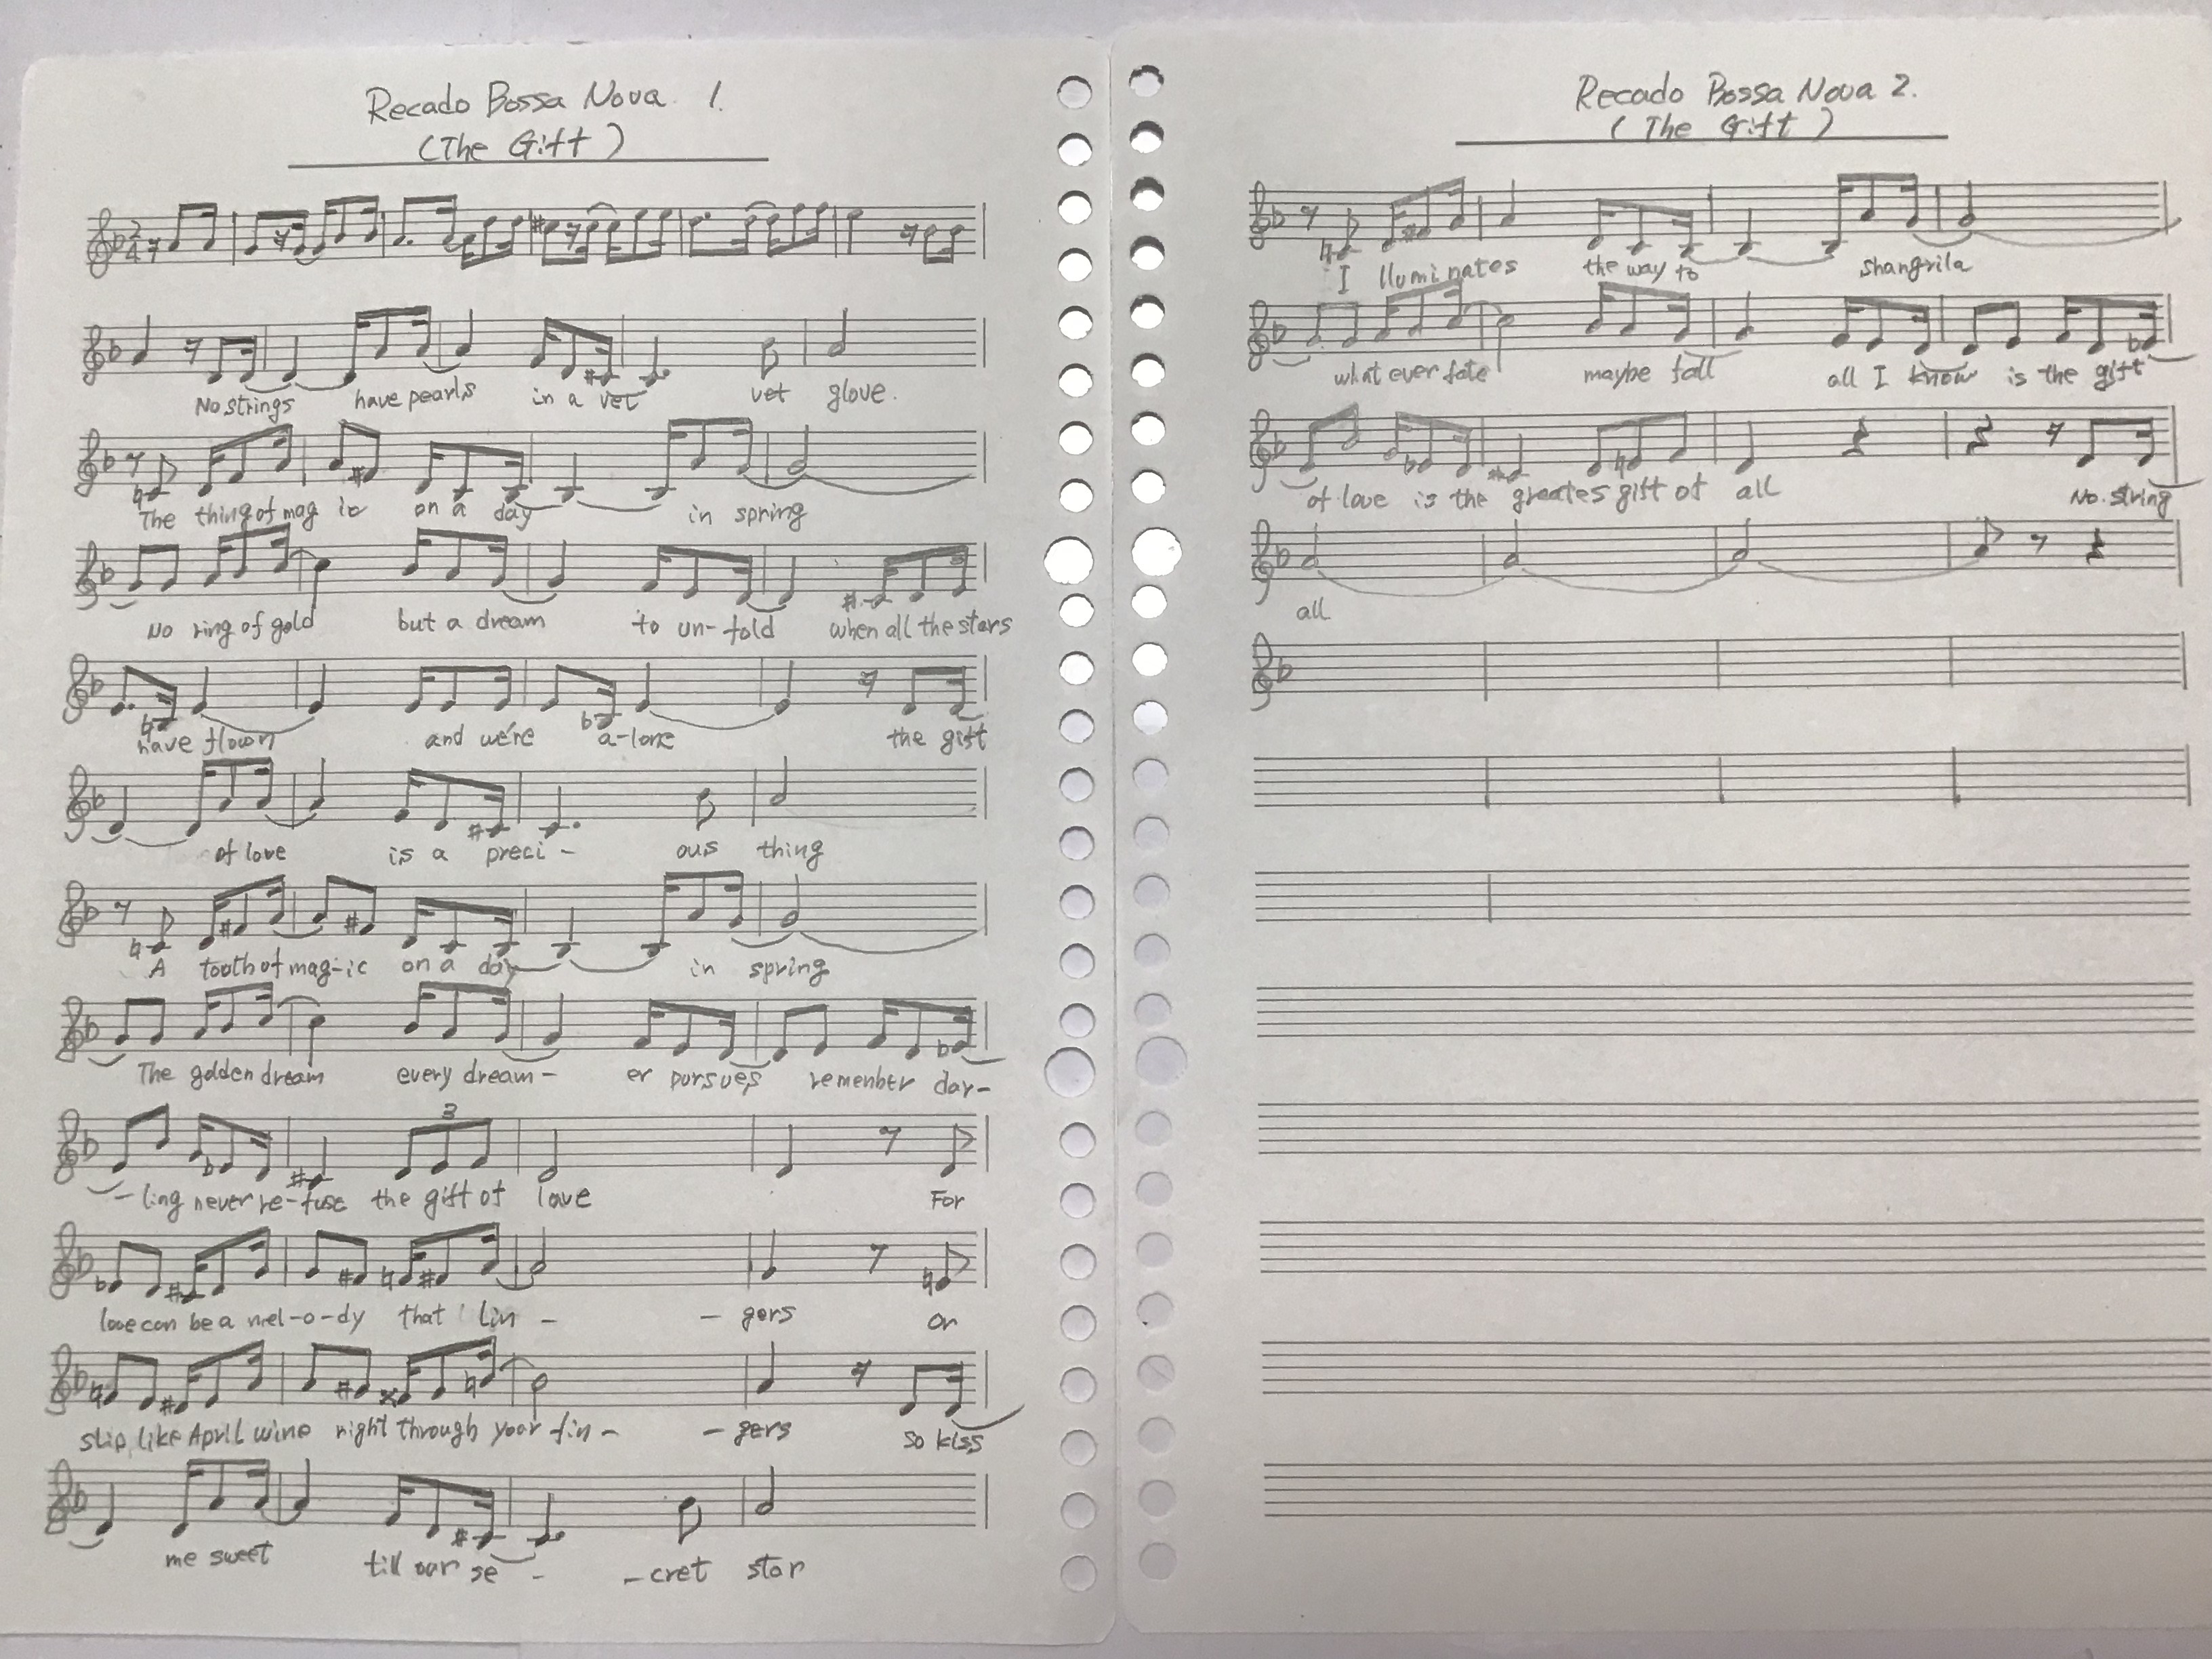 Recado Bossa Nova 1.
(The Gift)
2
4
No strings have pearls in a vet vet glove.
The thing of mag ic on a day in spring
No ring of gold but a dream to un-fold when all the stars
have flown and we're a-lone the gift
of love is a preci- ous thing
A tooth of mag-ic on a day in spring
The golden dream every dream- er pursues remenber dar-
3
-ling never re-fuse the gift of love For
love can be a mel-o-dy that lin - - gers or
slip like April wine right through your fin- - gers so kiss
me sweet till our se - - cret star
Recado Bossa Nova 2.
(The Gift)
I lluminates the way to shangrila
what ever fate maybe fall all I know is the gift
of love is the greates gift of all No string
all